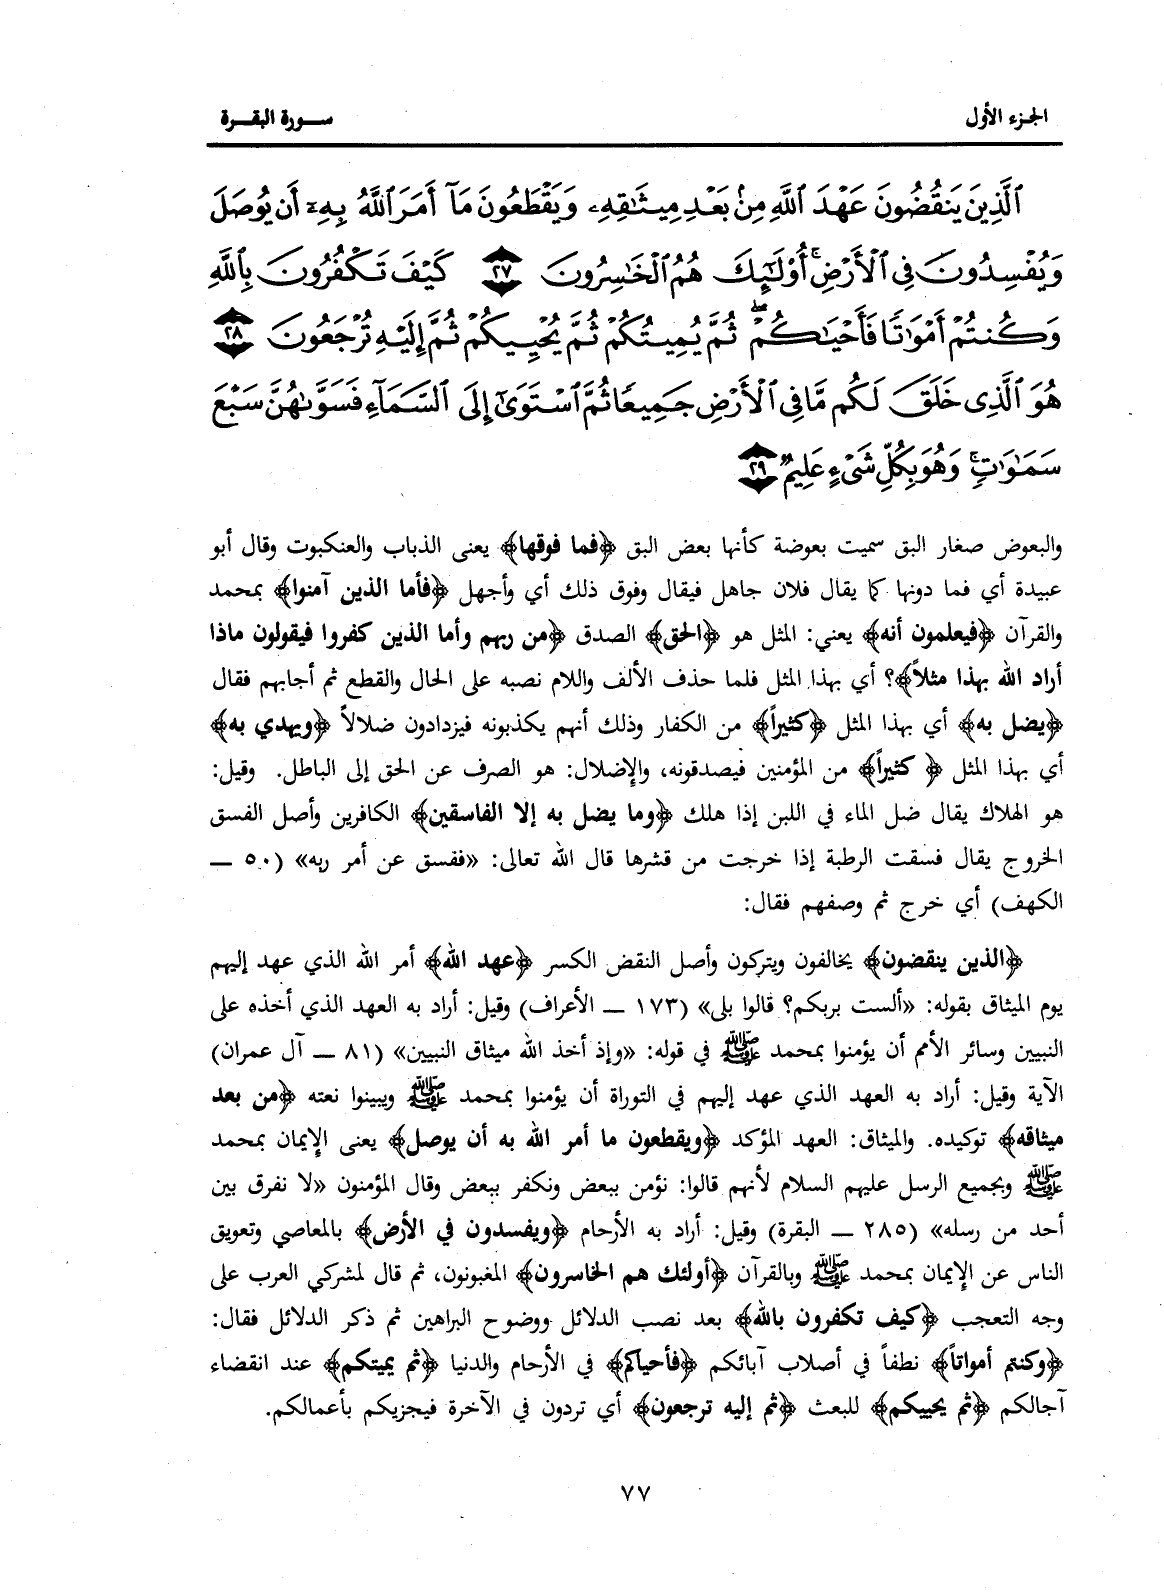 الجزء الأول
سورة البقرة
ٱلَّذِينَ يَنقُضُونَ عَهْدَ ٱللَّهِ مِنۢ بَعْدِ مِيثَٰقِهِۦ وَيَقْطَعُونَ مَآ أَمَرَ ٱللَّهُ بِهِۦٓ أَن يُوصَلَ
وَيُفْسِدُونَ فِى ٱلْأَرْضِ ۚ أُو۟لَٰٓئِكَ هُمُ ٱلْخَٰسِرُونَ ٢٧ كَيْفَ تَكْفُرُونَ بِٱللَّهِ
وَكُنتُمْ أَمْوَٰتًا فَأَحْيَٰكُمْ ۖ ثُمَّ يُمِيتُكُمْ ثُمَّ يُحْيِيكُمْ ثُمَّ إِلَيْهِ تُرْجَعُونَ ٢٨
هُوَ ٱلَّذِى خَلَقَ لَكُم مَّا فِى ٱلْأَرْضِ جَمِيعًا ثُمَّ ٱسْتَوَىٰٓ إِلَى ٱلسَّمَآءِ فَسَوَّىٰهُنَّ سَبْعَ
سَمَٰوَٰتٍ ۚ وَهُوَ بِكُلِّ شَىْءٍ عَلِيمٌ ٢٩
والبعوض صغار البق سميت بعوضة كأنها بعض البق ﴿فما فوقها﴾ يعنى الذباب والعنكبوت وقال أبو
عبيدة أي فما دونها كما يقال فلان جاهل فيقال وفوق ذلك أي وأجهل ﴿فأما الذين آمنوا﴾ بمحمد
والقرآن ﴿فيعلمون أنه﴾ يعني: المثل هو ﴿الحق﴾ الصدق ﴿من ربهم وأما الذين كفروا فيقولون ماذا
أراد الله بهذا مثلاً﴾؟ أي بهذا المثل فلما حذف الألف واللام نصبه على الحال والقطع ثم أجابهم فقال
﴿يضل به﴾ أي بهذا المثل ﴿كثيراً﴾ من الكفار وذلك أنهم يكذبونه فيزدادون ضلالاً ﴿ويهدي به﴾
أي بهذا المثل ﴿ كثيراً﴾ من المؤمنين فيصدقونه، والإضلال: هو الصرف عن الحق إلى الباطل. وقيل:
هو الهلاك يقال ضل الماء في اللبن إذا هلك ﴿وما يضل به إلا الفاسقين﴾ الكافرين وأصل الفسق
الخروج يقال فسقت الرطبة إذا خرجت من قشرها قال الله تعالى: «ففسق عن أمر ربه» (٥٠ ــ
الكهف) أي خرج ثم وصفهم فقال:
﴿الذين ينقضون﴾ يخالفون ويتركون وأصل النقض الكسر ﴿عهد الله﴾ أمر الله الذي عهد إليهم
يوم الميثاق بقوله: «ألست بربكم؟ قالوا بلى» (١٧٣ ــ الأعراف) وقيل: أراد به العهد الذي أخذه على
النبيين وسائر الأمم أن يؤمنوا بمحمد ﷺ في قوله: «وإذ أخذ الله ميثاق النبيين» (٨١ ــ آل عمران)
الآية وقيل: أراد به العهد الذي عهد إليهم في التوراة أن يؤمنوا بمحمد ﷺ ويبينوا نعته ﴿من بعد
ميثاقه﴾ توكيده. والميثاق: العهد المؤكد ﴿ويقطعون ما أمر الله به أن يوصل﴾ يعنى الإيمان بمحمد
ﷺ وبجميع الرسل عليهم السلام لأنهم قالوا: نؤمن ببعض ونكفر ببعض وقال المؤمنون «لا نفرق بين
أحد من رسله» (٢٨٥ ــ البقرة) وقيل: أراد به الأرحام ﴿ويفسدون في الأرض﴾ بالمعاصي وتعويق
الناس عن الإيمان بمحمد ﷺ وبالقرآن ﴿أولئك هم الخاسرون﴾ المغبونون، ثم قال لمشركي العرب على
وجه التعجب ﴿كيف تكفرون بالله﴾ بعد نصب الدلائل ووضوح البراهين ثم ذكر الدلائل فقال:
﴿وكنتم أمواتاً﴾ نطفاً في أصلاب آبائكم ﴿فأحياكم﴾ في الأرحام والدنيا ﴿ثم يميتكم﴾ عند انقضاء
آجالكم ﴿ثم يحييكم﴾ للبعث ﴿ثم إليه ترجعون﴾ أي تردون في الآخرة فيجزيكم بأعمالكم.
٧٧